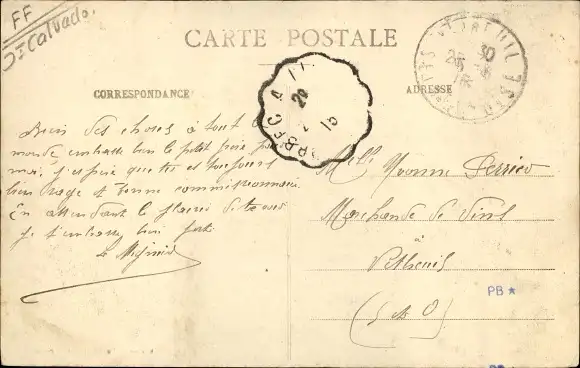 FF
Calvados
CARTE POSTALE
CORRESPONDANCE
ADRESSE
Bien des choses à tout le
monde embrasse bien le petit frère pour
moi, j'espère que tu es toujours
bien sage et bonne commissionnaire
En attendant le plaisir de te voir
je t'embrasse bien fort
Mlle Yvonne Perrier
Marchande de Vins
à
Vétheuil
(S & O)
PB ★